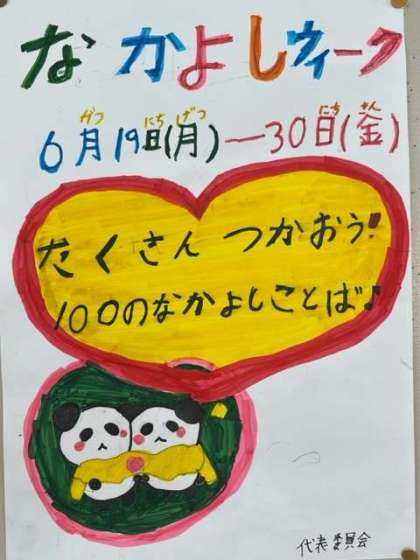 なかよしウィーク
がつ にち げつ にち きん
6月19日(月)―30日(金)
たくさん つかおう!
100のなかよしことば♪
代表委員会